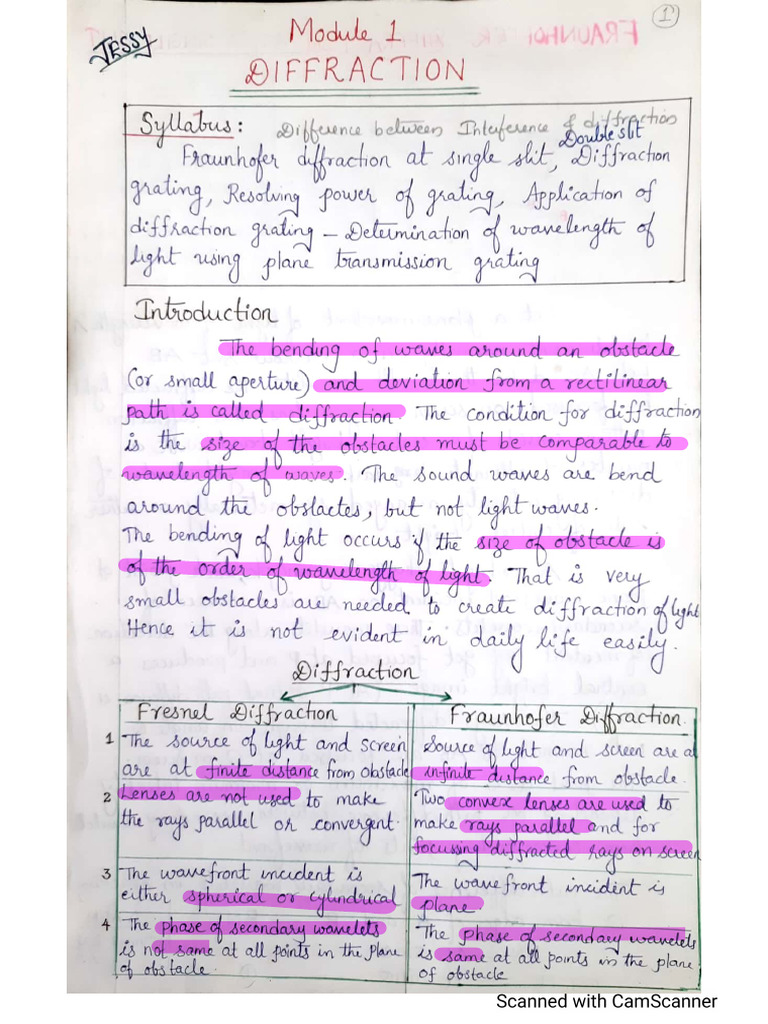 1
JESSY
Module 1
DIFFRACTION
Syllabus: Difference between Interference & diffraction
Double slit
Fraunhofer diffraction at single slit, Diffraction
grating, Resolving power of grating, Application of
diffraction grating – Determination of wavelength of
light using plane transmission grating
Introduction
The bending of waves around an obstacle
(or small aperture) and deviation from a rectilinear
path is called diffraction. The condition for diffraction
is the size of the obstacles must be comparable to
wavelength of waves. The sound waves are bend
around the obslactes, but not light waves.
The bending of light occurs if the size of obstacle is
of the order of wavelength of light. That is very
small obstacles are needed to create diffraction of light
Hence it is not evident in daily life easily.
Diffraction
Fresnel Diffraction
Fraunhofer Diffraction.
1 The source of light and screen
are at finite distance from obstacle
Source of light and screen are at
infinite distance from obstacle.
2 Lenses are not used to make
the rays parallel or convergent.
Two convex lenses are used to
make rays parallel and for
focussing diffracted rays on screen
3 The wavefront incident is
either spherical or cylindrical
The wavefront incident is
plane
4 The phase of secondary wavelets
is not same at all points in the plane
of obstacle.
The phase of secondary wavelets
is same at all points in the plane
of obstacle
Scanned with CamScanner